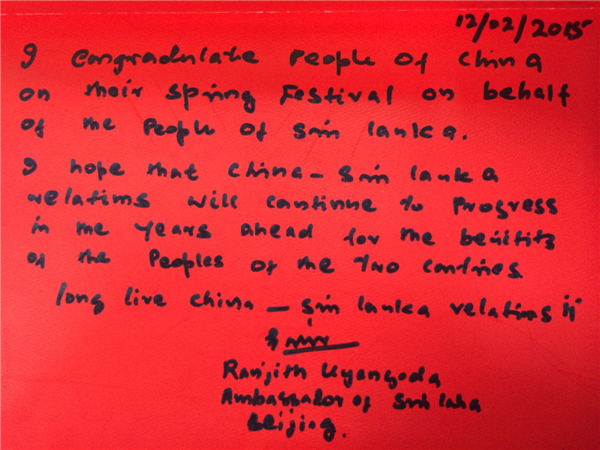 12/02/2015
I congradulate People of China
on their Spring Festival on behalf
of the People of Sri lanka.
I hope that China - Sri lanka
relations will continue to Progress
in the years ahead for the benifits
of the Peoples of the Two contries
long live china - Sri lanka relations !!
Ranjith Uyangoda
Ambassador of Sri lanka
Beijing.